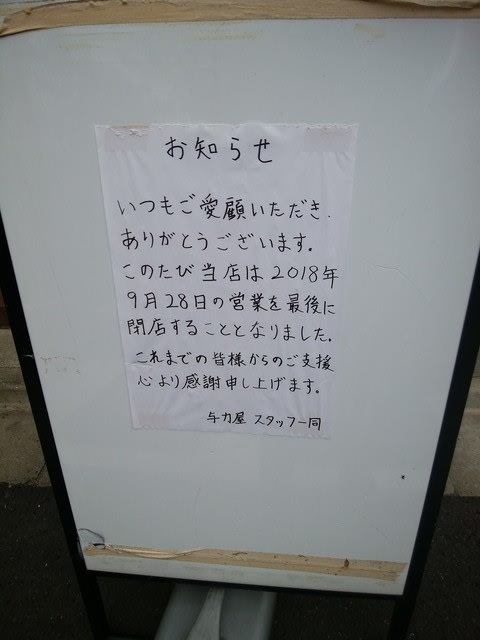 お知らせ
いつもご愛顧いただき、
ありがとうございます。
このたび当店は2018年
9月28日の営業を最後に
閉店することとなりました。
これまでの皆様からのご支援
心より感謝申し上げます。
与力屋 スタッフ一同